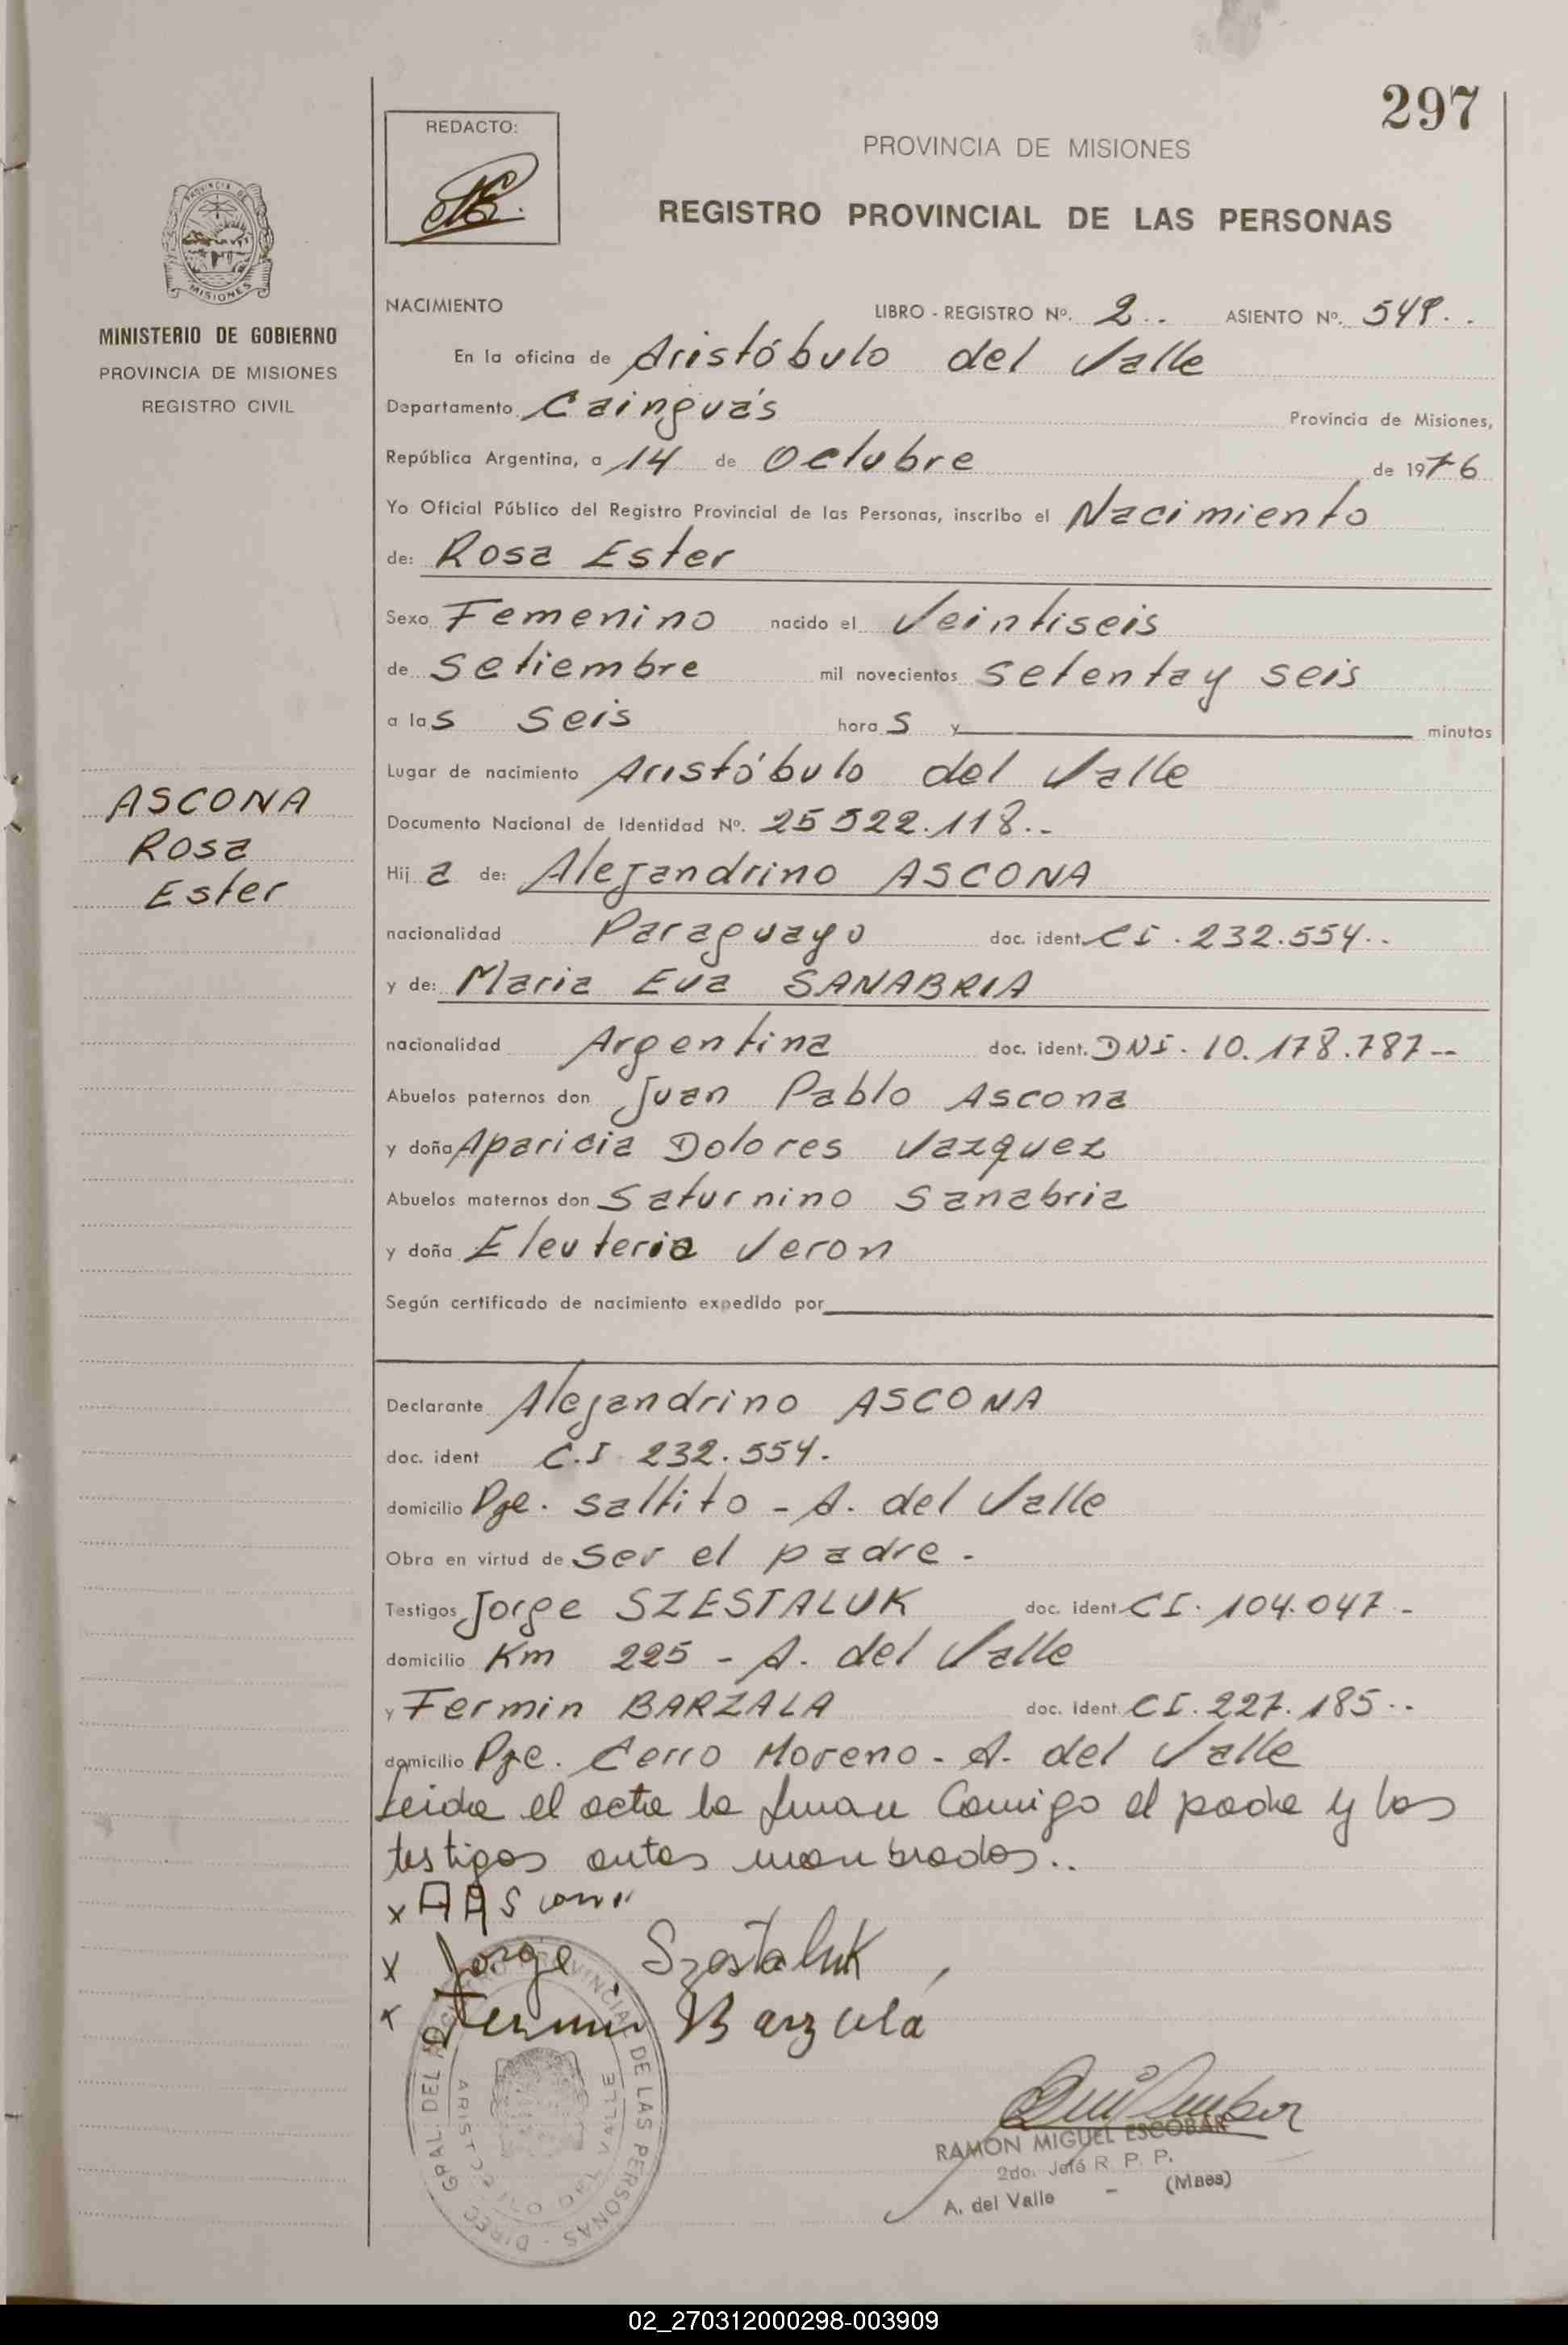 297
REDACTO:
PROVINCIA DE MISIONES
REGISTRO PROVINCIAL DE LAS PERSONAS
PROVINCIA DE
MISIONES
MINISTERIO DE GOBIERNO
PROVINCIA DE MISIONES
REGISTRO CIVIL
NACIMIENTO LIBRO - REGISTRO Nº. 2.. ASIENTO Nº. 549..
En la oficina de Aristóbulo del Valle
Departamento Cainguás Provincia de Misiones,
República Argentina, a 14 de Octubre de 1976
Yo Oficial Público del Registro Provincial de las Personas, inscribo el Nacimiento
de: Rosa Ester
Sexo Femenino nacido el Veintiseis
de Setiembre mil novecientos setenta y seis
a las seis horas y minutos
Lugar de nacimiento Aristóbulo del Valle
ASCONA
Rosa
Ester
Documento Nacional de Identidad Nº. 25 522.118..
Hija de: Alejandrino ASCONA
nacionalidad Paraguayo doc. ident. CI. 232.554..
y de: Maria Eva SANABRIA
nacionalidad Argentina doc. ident. DNI. 10.178.787--
Abuelos paternos don Juan Pablo Ascona
y doña Aparicia Dolores Vazquez
Abuelos maternos don Saturnino Sanabria
y doña Eleuteria Veron
Según certificado de nacimiento expedido por
Declarante Alejandrino ASCONA
doc. ident C.I 232.554.
domicilio Pje. Saltito - A. del Valle
Obra en virtud de ser el padre.
Testigos Jorge SZESTALUK doc. ident CI. 104.047-
domicilio Km 225 - A. del Valle
y Fermin BARZALA doc. ident CI. 227.185..
domicilio Pje. Cerro Moreno - A. del Valle
Leida el acta la firman Comigo el padre y los
testigos antes mombrados..
x
x Jorge Szestaluk
x Fermin Barzala
DIREC. GRAL. DEL REGISTRO PROVINCIAL DE LAS PERSONAS
DEL VALLE
RAMON MIGUEL ESCOBAR
2do. Jefe R. P. P.
A. del Valle - (Mnes)
02_270312000298-003909